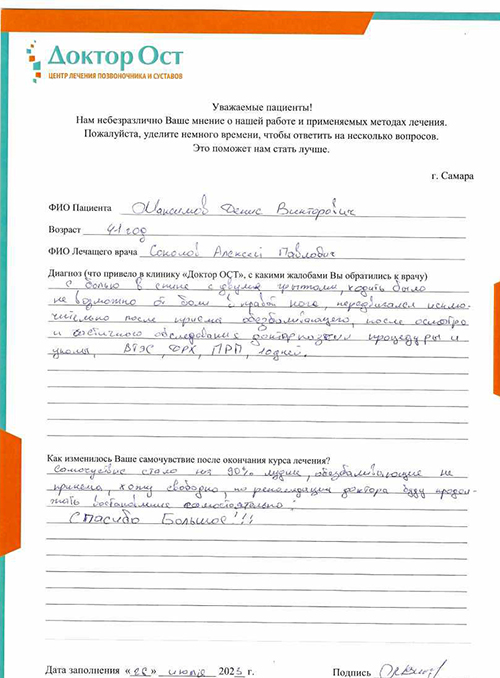 Доктор Ост
ЦЕНТР ЛЕЧЕНИЯ ПОЗВОНОЧНИКА И СУСТАВОВ
Уважаемые пациенты!
Нам небезразлично Ваше мнение о нашей работе и применяемых методах лечения.
Пожалуйста, уделите немного времени, чтобы ответить на несколько вопросов.
Это поможет нам стать лучше.
г. Самара
ФИО Пациента Максимов Денис Викторович
Возраст 41 год
ФИО Лечащего врача Соколов Алексей Павлович
Диагноз (что привело в клинику «Доктор ОСТ», с какими жалобами Вы обратились к врачу)
С болью в спине с двумя грыжами, ходить было
не возможно от боли в правой ноге, передвигался исклю-
чительно после приема обезболивающего, после осмотра
и обследования доктор процедуры и
уколы, ВТЭС, ФРХ, ПРП, 10 дней.
Как изменилось Ваше самочувствие после окончания курса лечения?
Самочувствие стало на 90% лучше, обезболивающие не
хожу свободно, по рекомендации доктора буду продол-
жать самостоятельно.
Спасибо Большое!!!
Дата заполнения « » 2023 г. Подпись